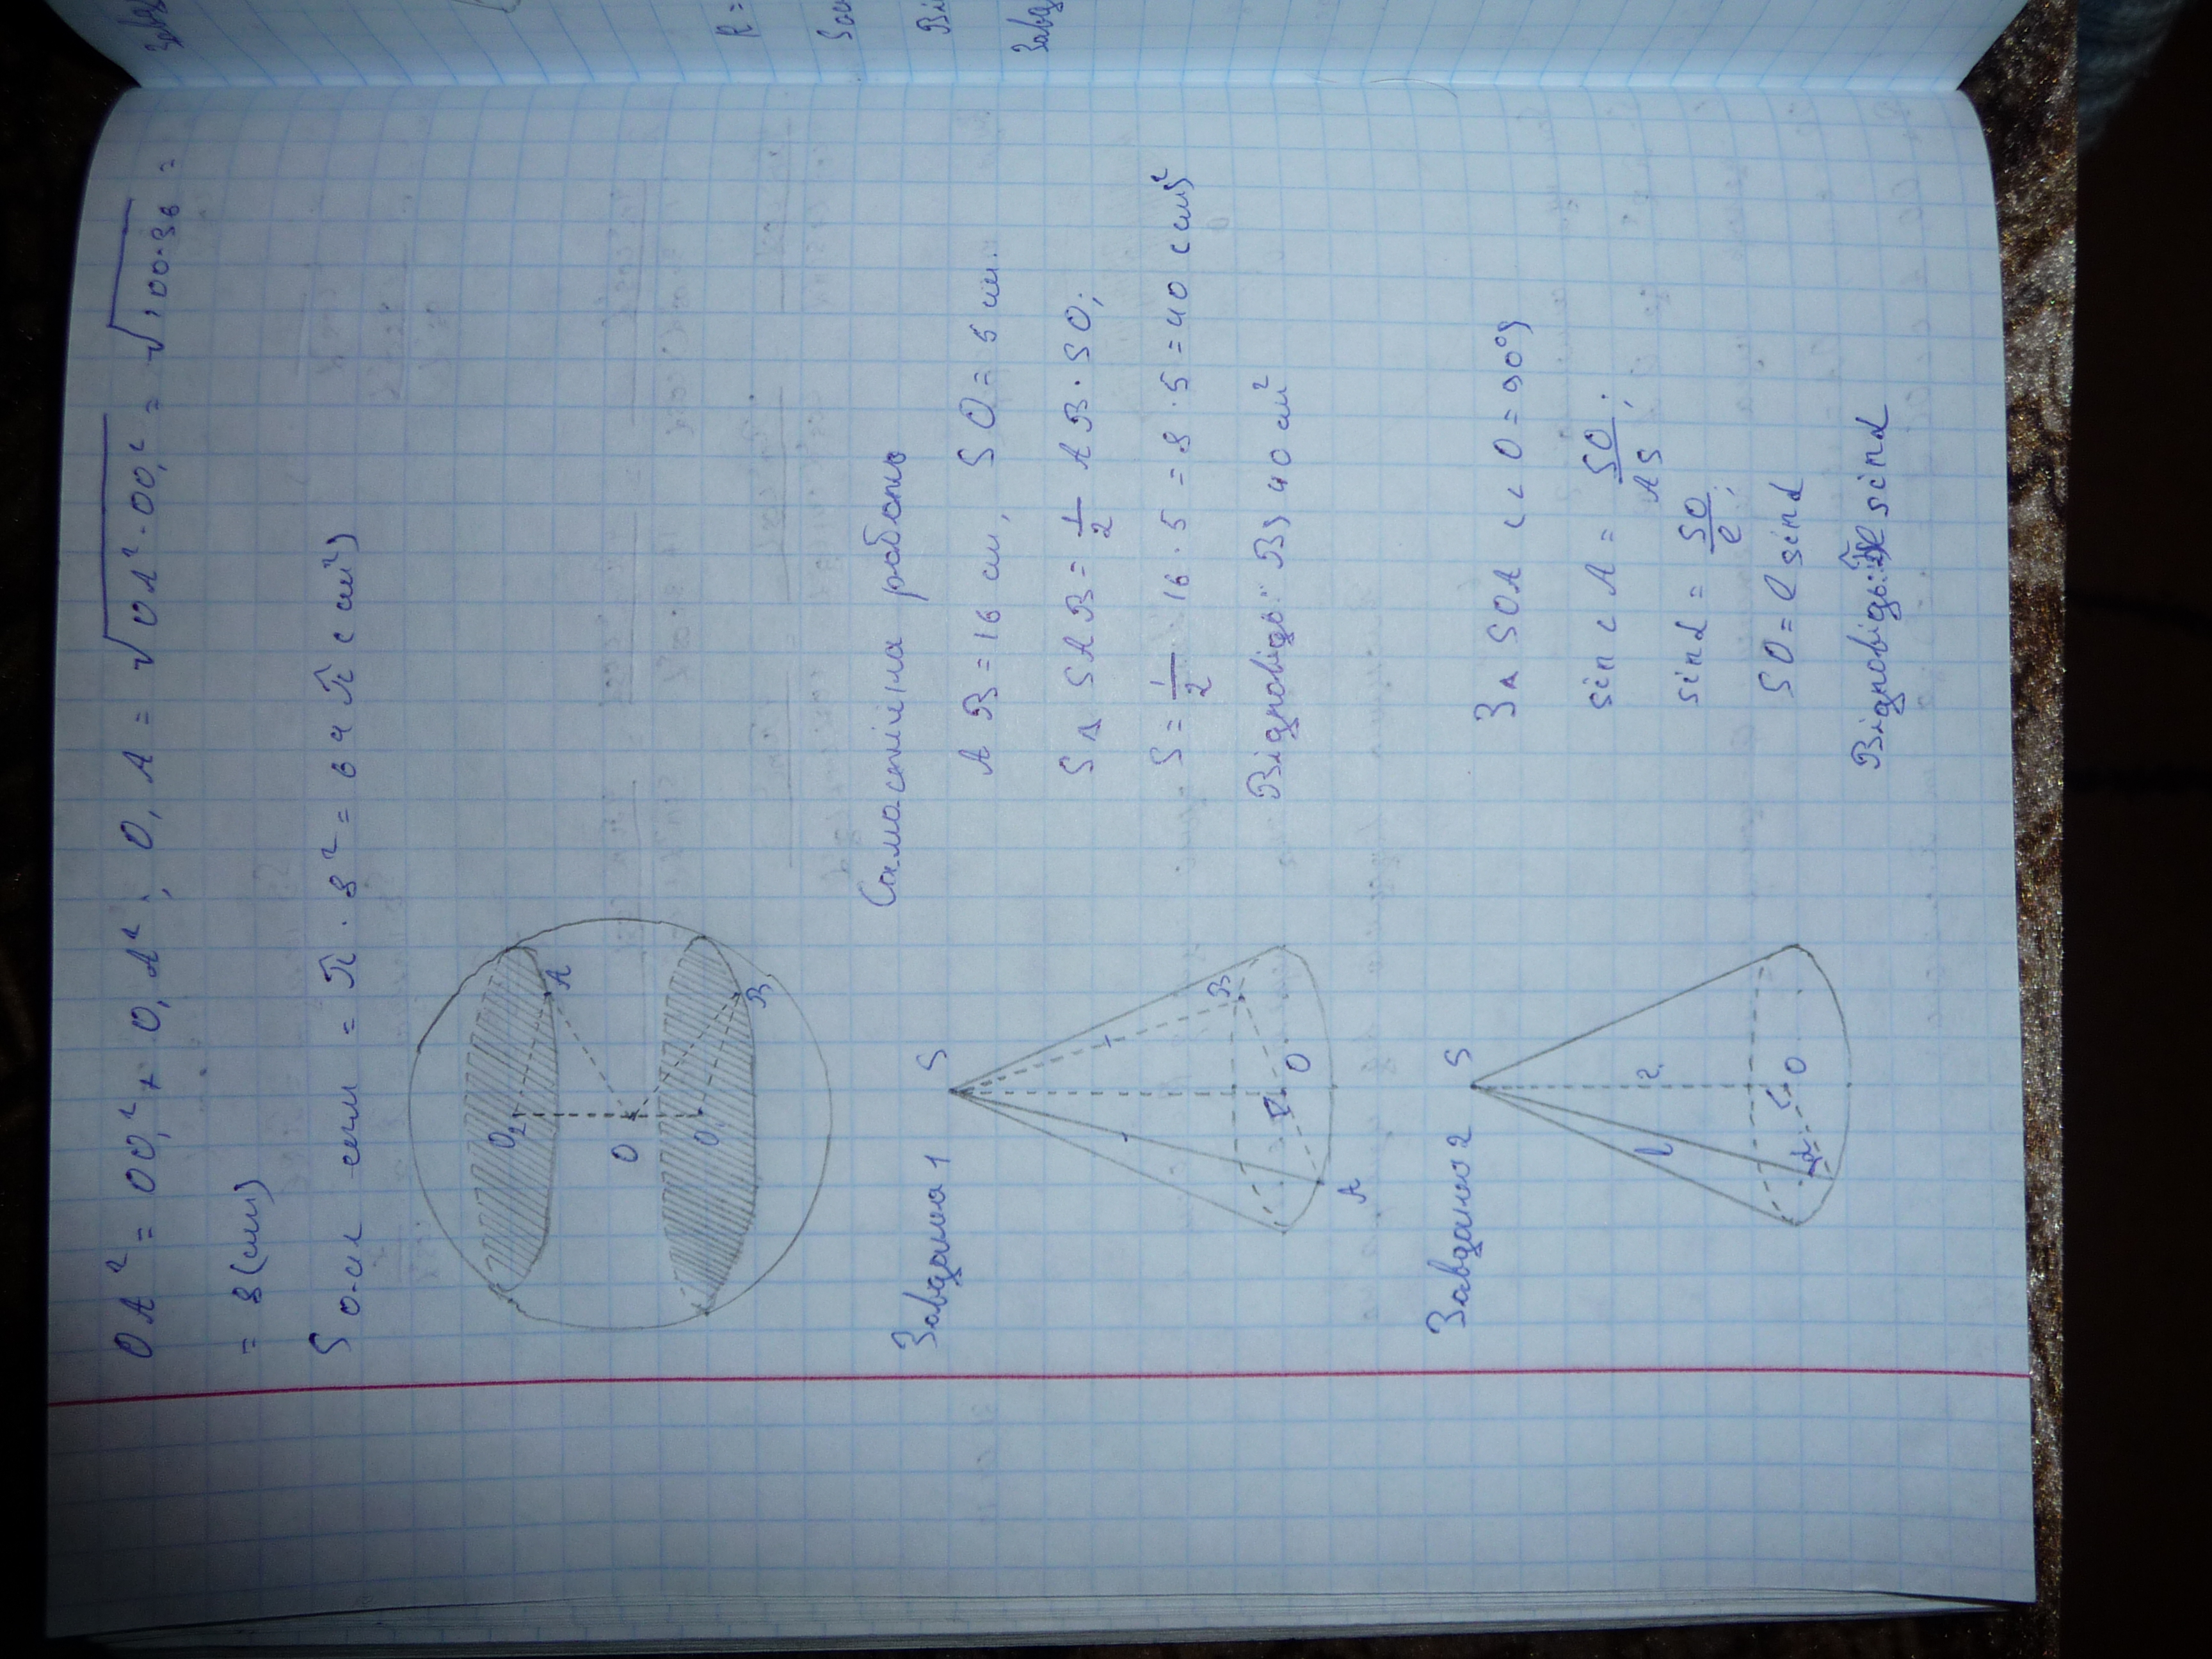 OA² = OO₁² + O₁A²; O₁A = √OA² · OO₁² = √100 · 36 =
= 8 (см)
S осн сеч = π · 8² = 64 π (см²)
O₂
A
O
O₁
B
Самостійна робота
Завдання 1
AB = 16 см, SO = 5 см.
S △ SAB = 1/2 AB · SO;
S = 1/2 · 16 · 5 = 8 · 5 = 40 (см²)
Відповідь: Від 40 см²
S
B
O
A
Завдання 2
З △ SOA (< O = 90°)
sin < A = SO/AS;
sin α = SO/l;
SO = l sin α
Відповідь: l sin α
S
l
O
α
R =
Завд